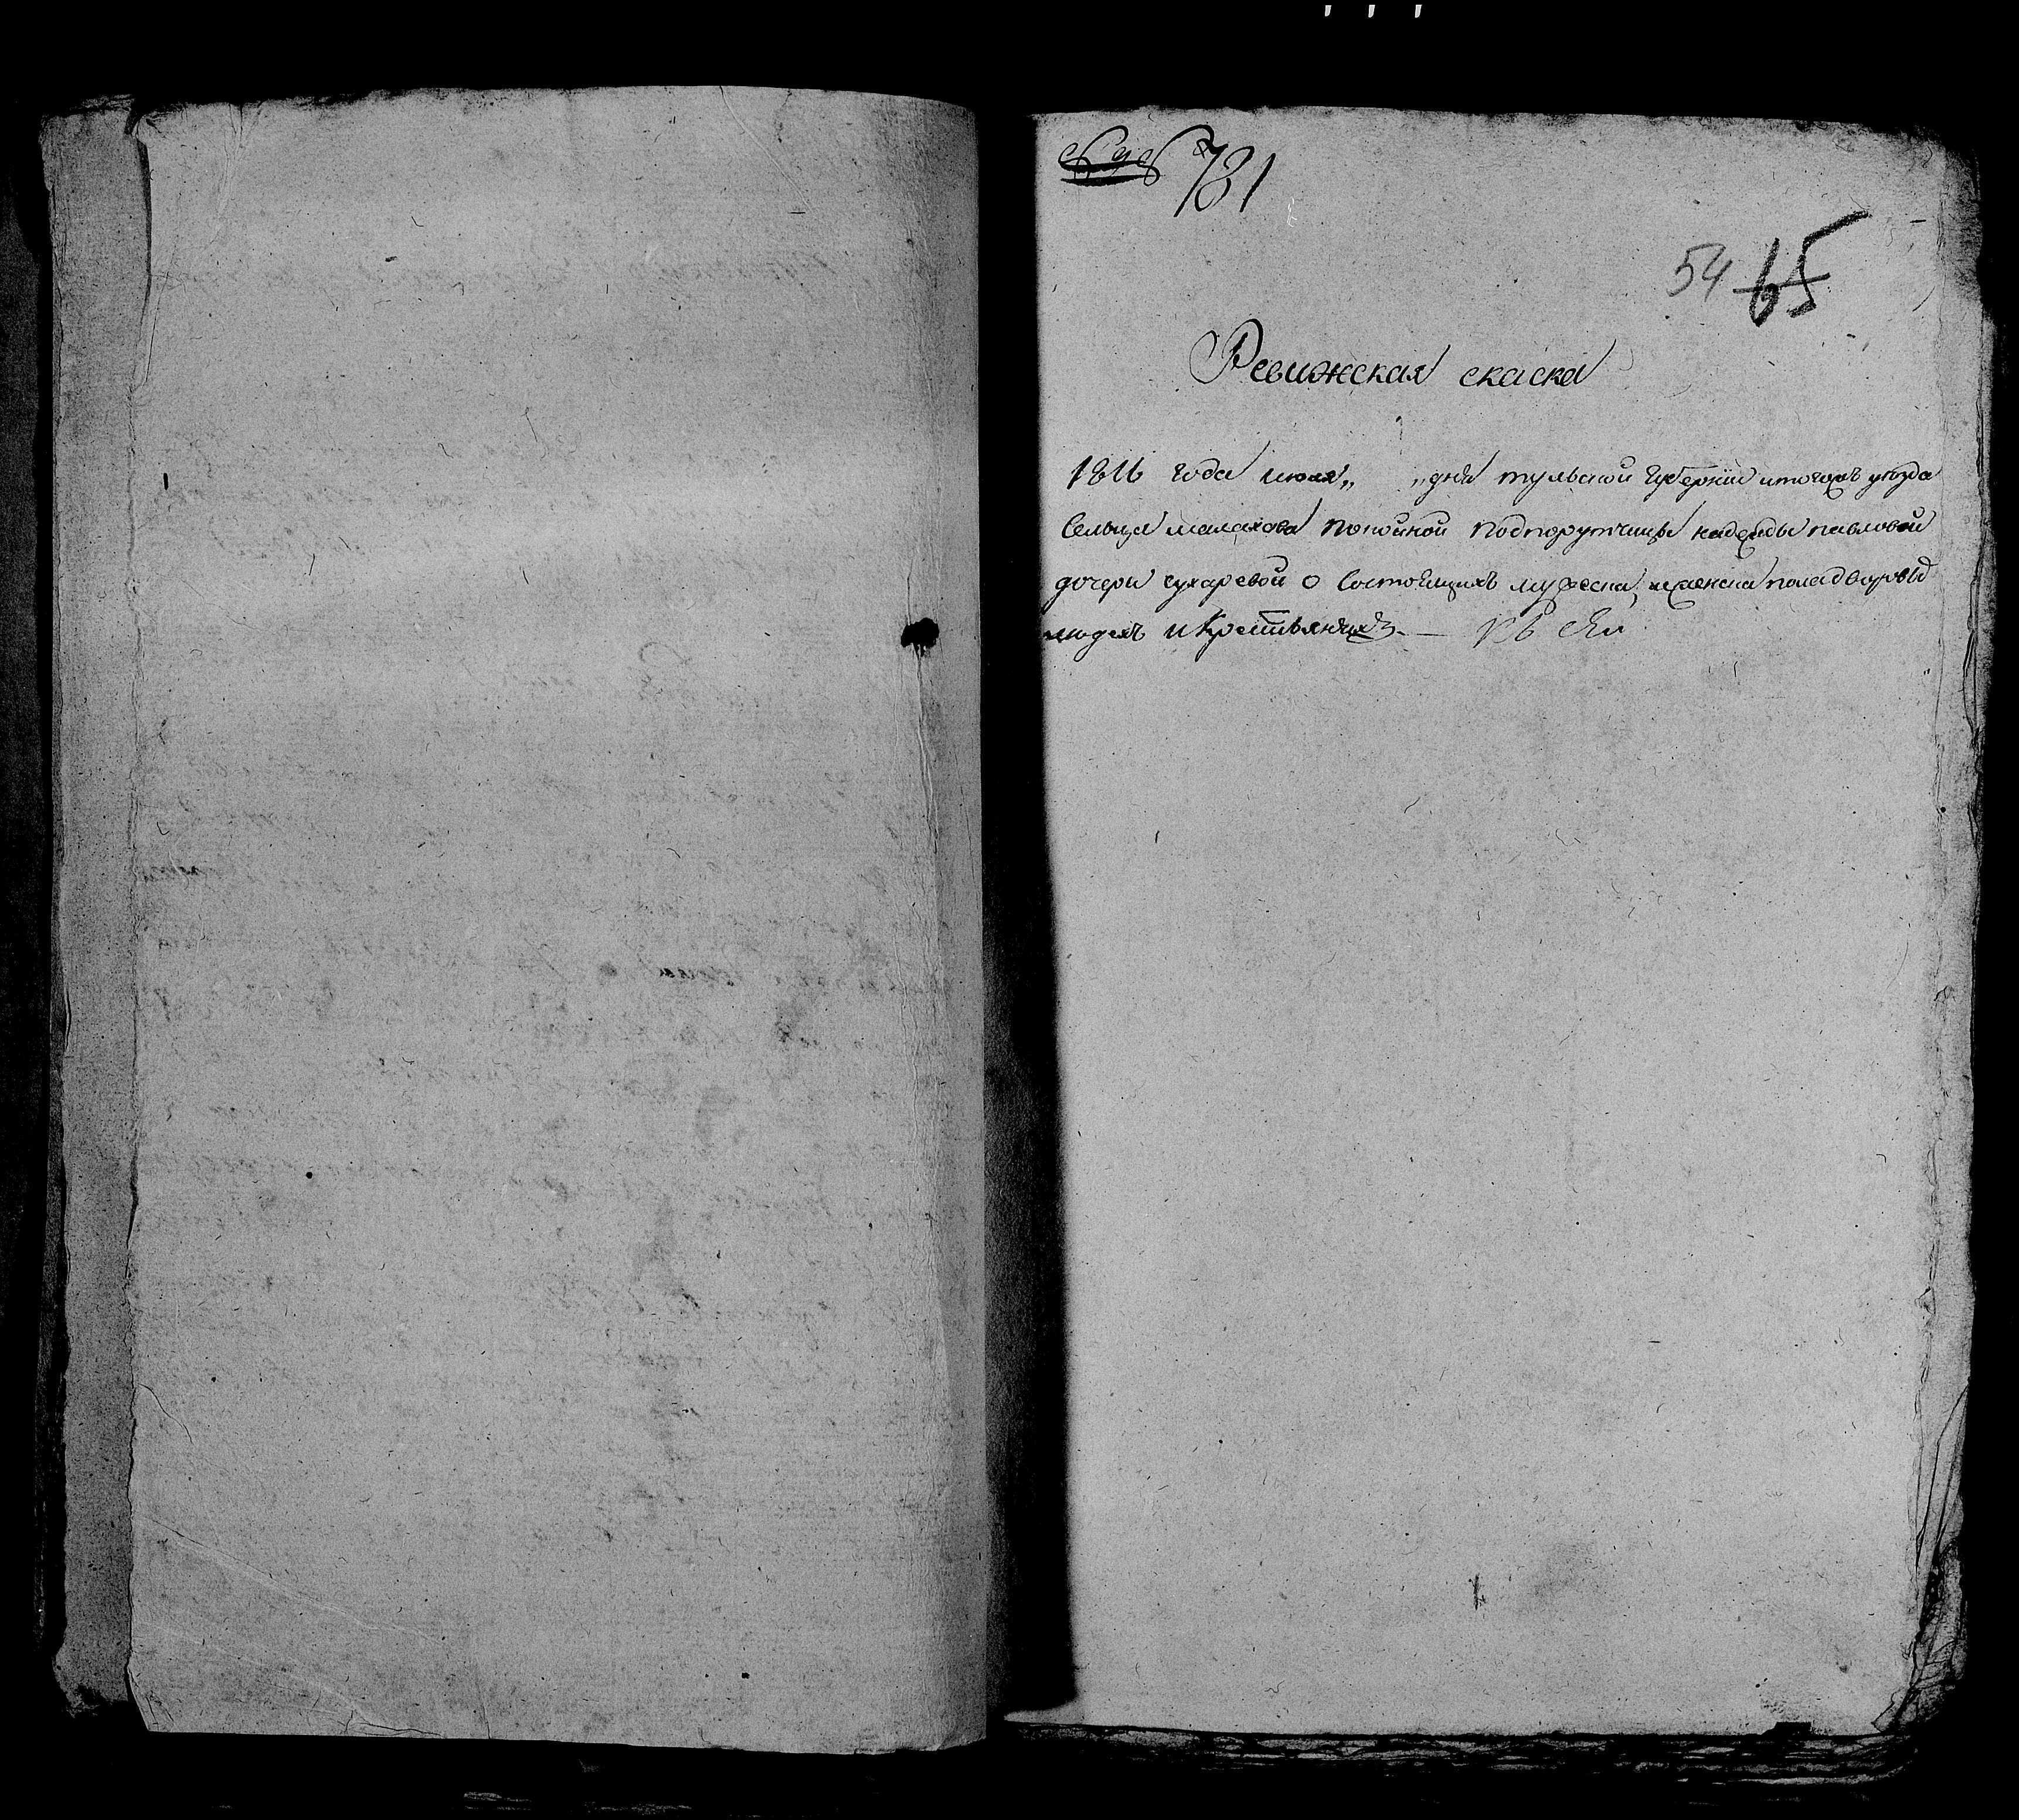 731
54 65
Ревижская скаска
1816 года июля „ „ дня тульской Губернии уезда
Сельца малахова покойной Подпорутчицы надежды павловой
дочери сухаревой о Состоящихъ мужеска, и женска пола дворовыхъ
людехъ и Крестьянехъ. —